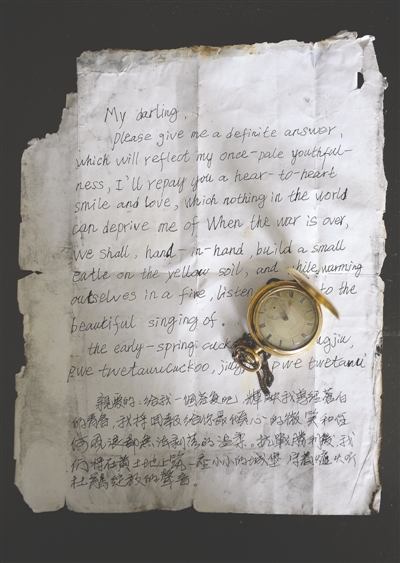 My darling,
please give me a definite answer,
which will reflect my once-pale youthful-
ness, I'll repay you a hear-to-heart
smile and love, which nothing in the world
can deprive me of When the war is over,
we shall, hand-in-hand, build a small
on the yellow soil, and while warming
ourselves in a fire, listen to the
beautiful singing of.
the early-spring
親愛的:給我一個答复吧,輝映我曾經蒼白
的青春,我將回報給你最傾心的微笑和任
何風浪都無法剥落的温柔,抗戰勝利後,我
們將在黄土地上築一座小小的城堡,
杜鵑綻放的聲音。